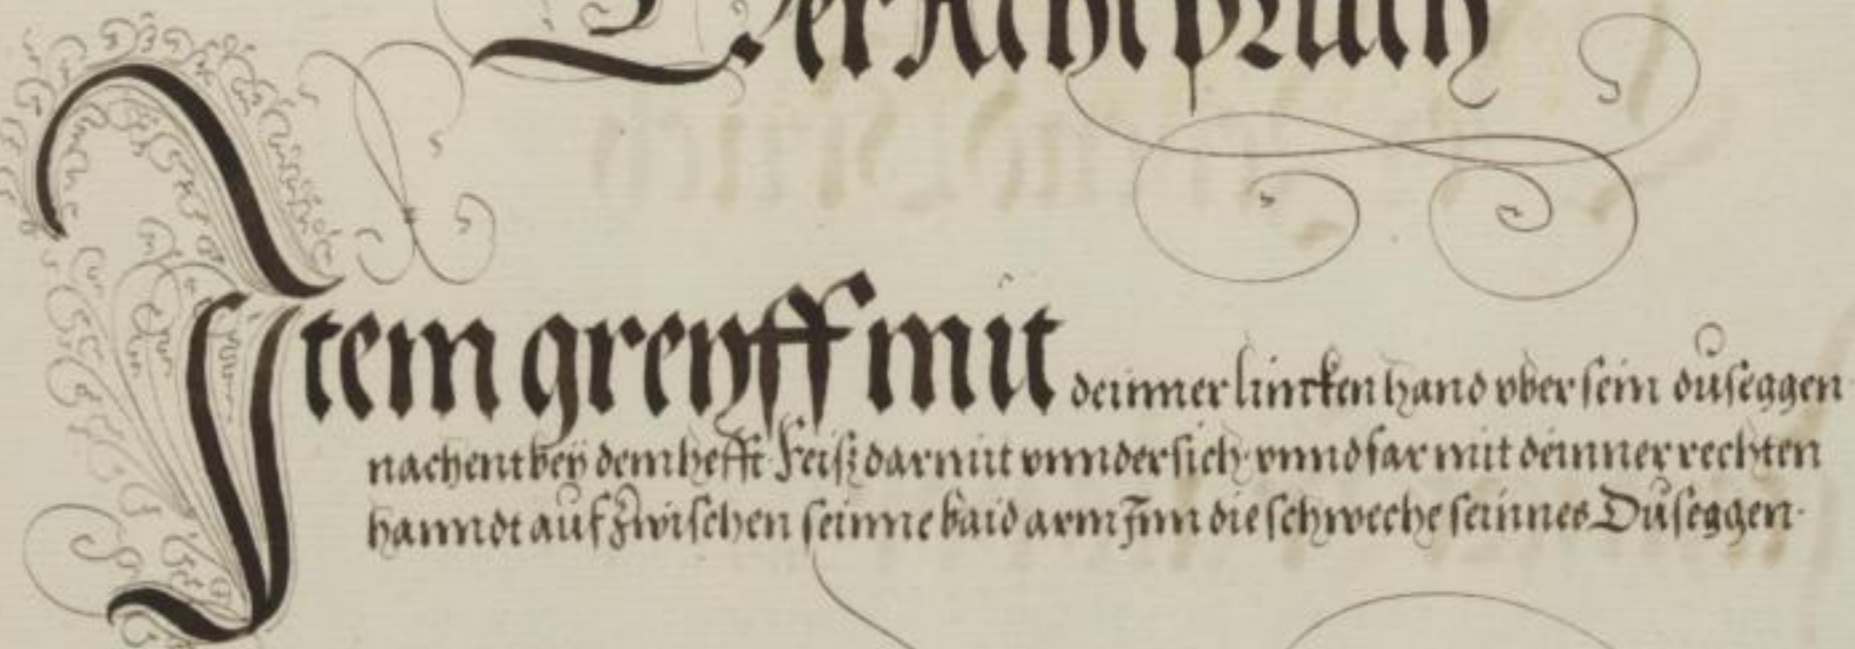 Der Acht pruch
Item greyff mit deinner lincken hand vber sein duseggen
nachent bey dem hefft Reiß darmit vnndersich vnnd far mit deinner rechten
hanndt auf Zwischen seinne baid arm Inn die schweche seinnes Duseggen